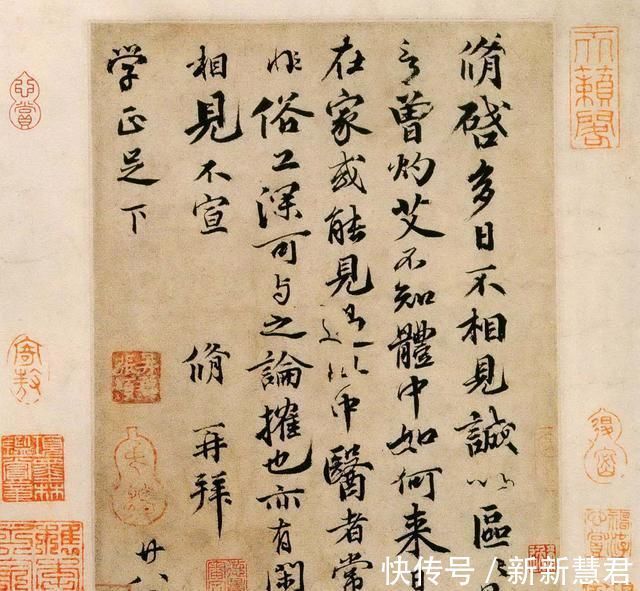 脩啓多日不相見誠以區〻
言曾灼艾不知體中如何来日
在家或能見過此中醫者常
非俗工深可与之論搉也亦有閑
相見不宣 脩 再拜
廿八
学正足下
天籟閣
快传号 / 新新慧君